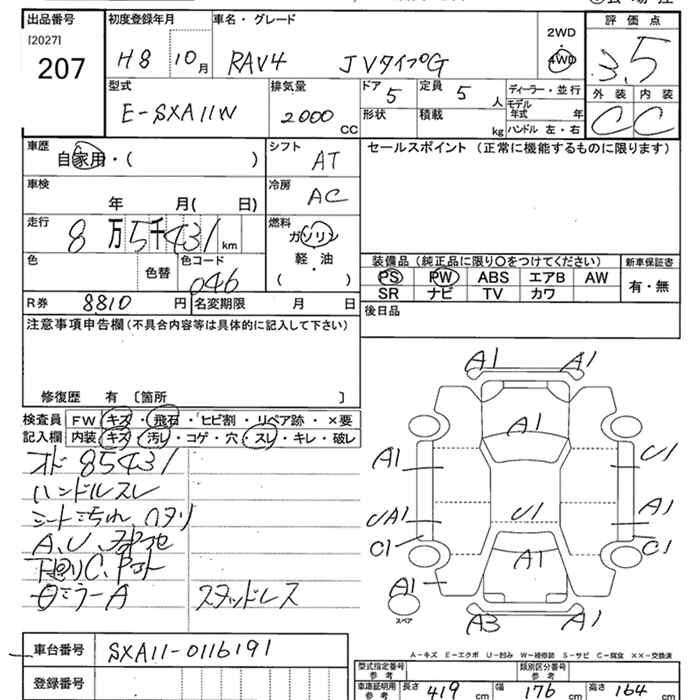 出品番号 初度登録年月 車名・グレード 評価点
[2027]
207 H8 10月 RAV4 JVタイプG 2WD・4WD 3.5
外装 内装
C C
型式 排気量 ドア 定員 ディーラー・並行
E-SXA11W 2000cc 5 5人 モデル年式 年
形状 積載 kg ハンドル 左・右
車歴 シフト セールスポイント (正常に機能するものに限ります)
自家用・( ) AT
車検 冷房
年 月( 日) AC
走行 燃料
8万5千431km ガソリン
軽・油
( )
色 色替 色コード 046
装備品(純正品に限り○をつけてください) 新車保証書
PS PW ABS エアB AW 有・無
SR ナビ TV カワ
R券 8810円 名変期限 月 日
後日品
注意事項申告欄(不具合内容等は具体的に記入して下さい)
修復歴 有 〔箇所 〕
検査員 FW キズ・飛石・ヒビ割・リペア跡・×要
記入欄 内装 キズ・汚レ・コゲ・穴・スレ・キレ・破レ
オド 85431
ハンドルスレ
シートよごれ、ヘタリ
A、U、
下廻りC、
ミラーA スタッドレス
A1 A1
A1
A1 U1
UA1 U1 A1
C1 C1
A1
A1
スペア
A3 A1
A-キズ E-エクボ U-凹み W-補修跡 S-サビ C-腐食 ××-交換済
車台番号 SXA11-0116191
登録番号
型式指定番号 参考 類別区分番号 参考
車庫証明用 参考 長さ 419cm 幅 176cm 高さ 164cm